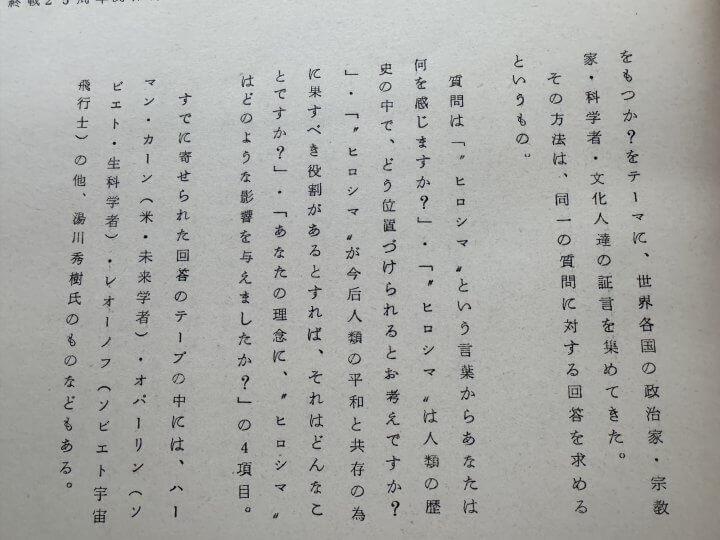 をもつか？をテーマに、世界各国の政治家・宗教
家・科学者・文化人達の証言を集めてきた。
その方法は、同一の質問に対する回答を求める
というもの。
質問は「〝ヒロシマ〟という言葉からあなたは
何を感じますか？」・「〝ヒロシマ〟は人類の歴
史の中で、どう位置づけられるとお考えですか？
」・「〝ヒロシマ〟が今后人類の平和と共存の為
に果すべき役割があるとすれば、それはどんなこ
とですか？」・「あなたの理念に、〝ヒロシマ〟
はどのような影響を与えましたか？」の4項目。
すでに寄せられた回答のテープの中には、ハー
マン・カーン（米・未来学者）・オパーリン（ソ
ビエト・生科学者）・レオーノフ（ソビエト宇宙
飛行士）の他、湯川秀樹氏のものなどもある。